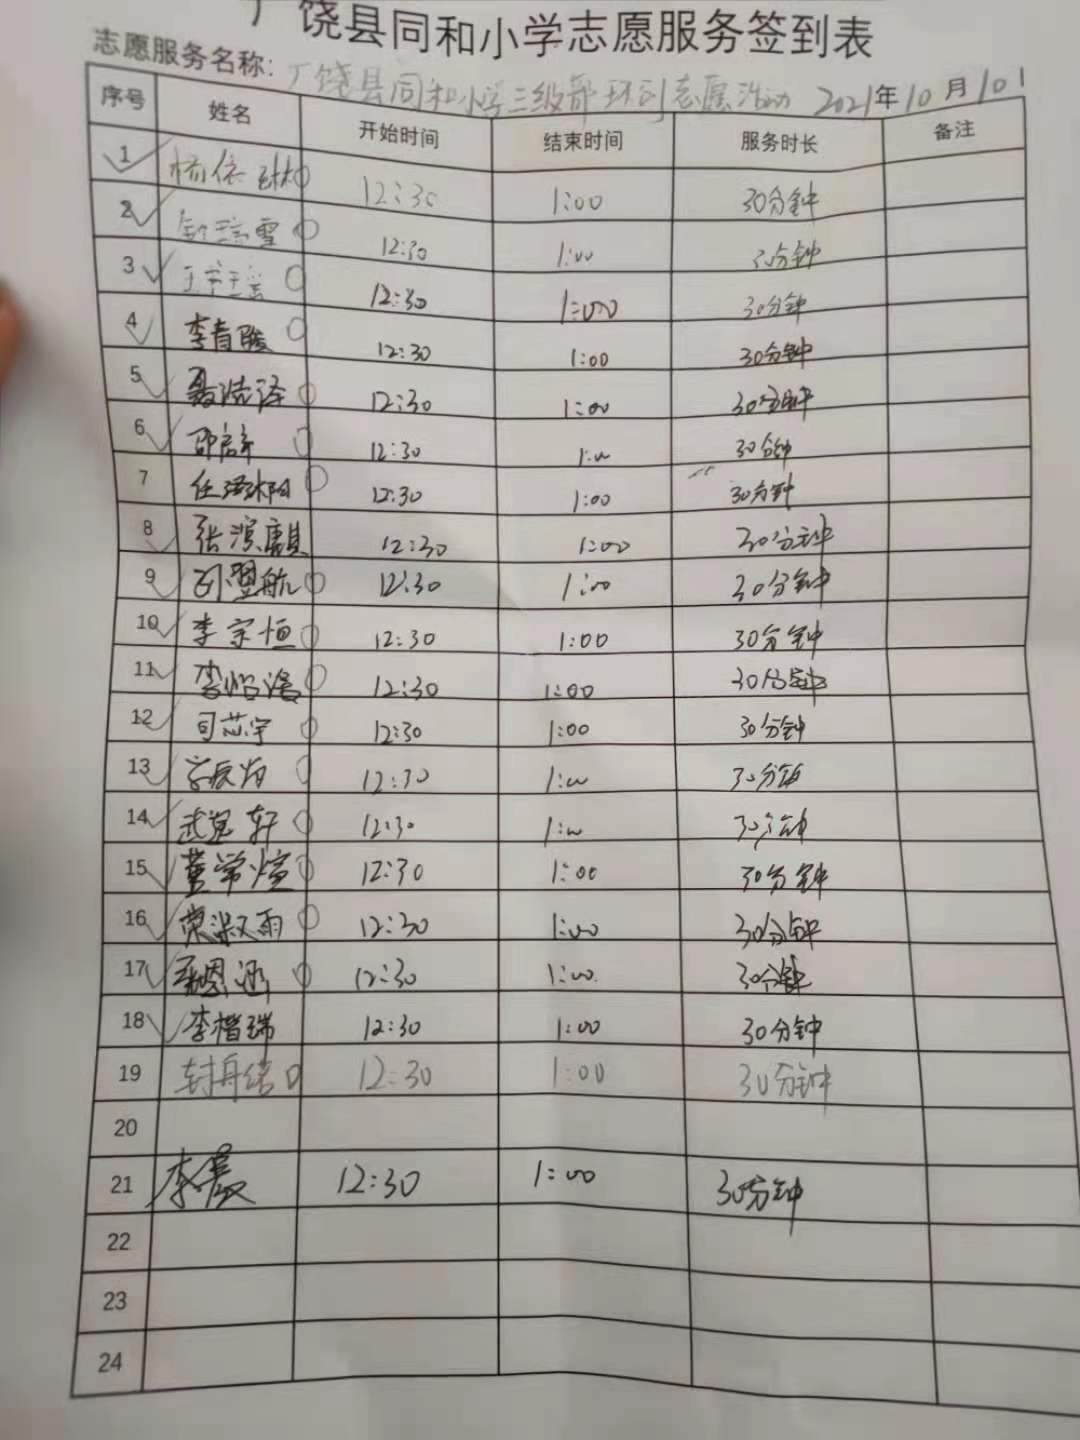 广饶县同和小学志愿服务签到表
志愿服务名称：广饶县同和小学三级部环卫志愿活动 2021年10月10日
序号 姓名 开始时间 结束时间 服务时长 备注
1 12:30 1:00 30分钟
2 12:30 1:00 30分钟
3 12:30 1:00 30分钟
4 李青骏 12:30 1:00 30分钟
5 聂浩泽 12:30 1:00 30分钟
6 12:30 1:00 30分钟
7 12:30 1:00 30分钟
8 12:30 1:00 30分钟
9 12:30 1:00 30分钟
10 李宗恒 12:30 1:00 30分钟
11 12:30 1:00 30分钟
12 司芯宇 12:30 1:00 30分钟
13 12:30 1:00 30分钟
14 12:30 1:00 30分钟
15 董常煊 12:30 1:00 30分钟
16 荣淑雨 12:30 1:00 30分钟
17 12:30 1:00 30分钟
18 李楷瑞 12:30 1:00 30分钟
19 12:30 1:00 30分钟
20
21 12:30 1:00 30分钟
22
23
24